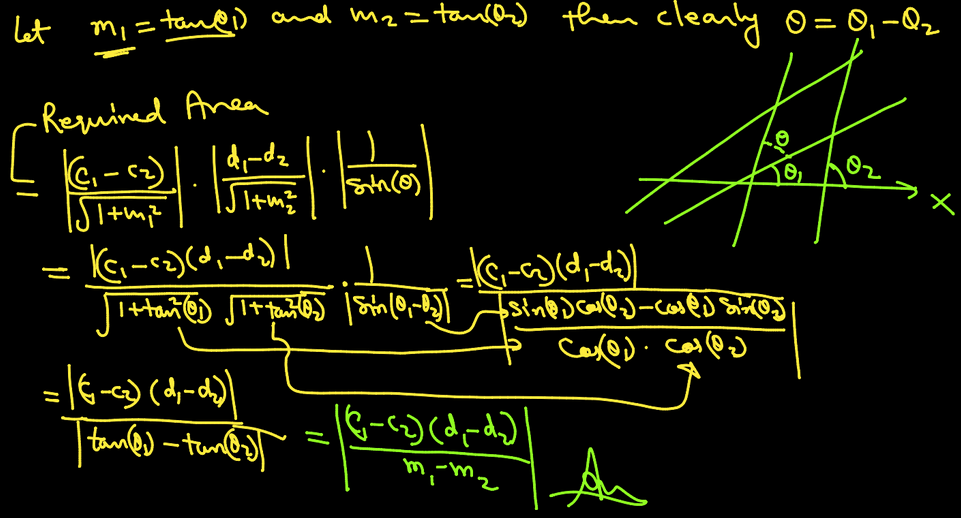 Let m₁ = tan(θ₁) and m₂ = tan(θ₂) then clearly θ = θ₁ - θ₂
Required Area
= |(c₁ - c₂)/√(1+m₁²)| · |(d₁ - d₂)/√(1+m₂²)| · |1/sin(θ)|
θ θ₁ θ₂ X
= |(c₁ - c₂)(d₁ - d₂)|/(√(1+tan²(θ₁)) √(1+tan²(θ₂))) · 1/|sin(θ₁-θ₂)| = |(c₁ - c₂)(d₁ - d₂)|/|(sin(θ₁)cos(θ₂) - cos(θ₁)sin(θ₂))/(cos(θ₁) · cos(θ₂))|
= |(c₁ - c₂)(d₁ - d₂)|/|tan(θ₁) - tan(θ₂)| = |(c₁ - c₂)(d₁ - d₂)/(m₁ - m₂)|